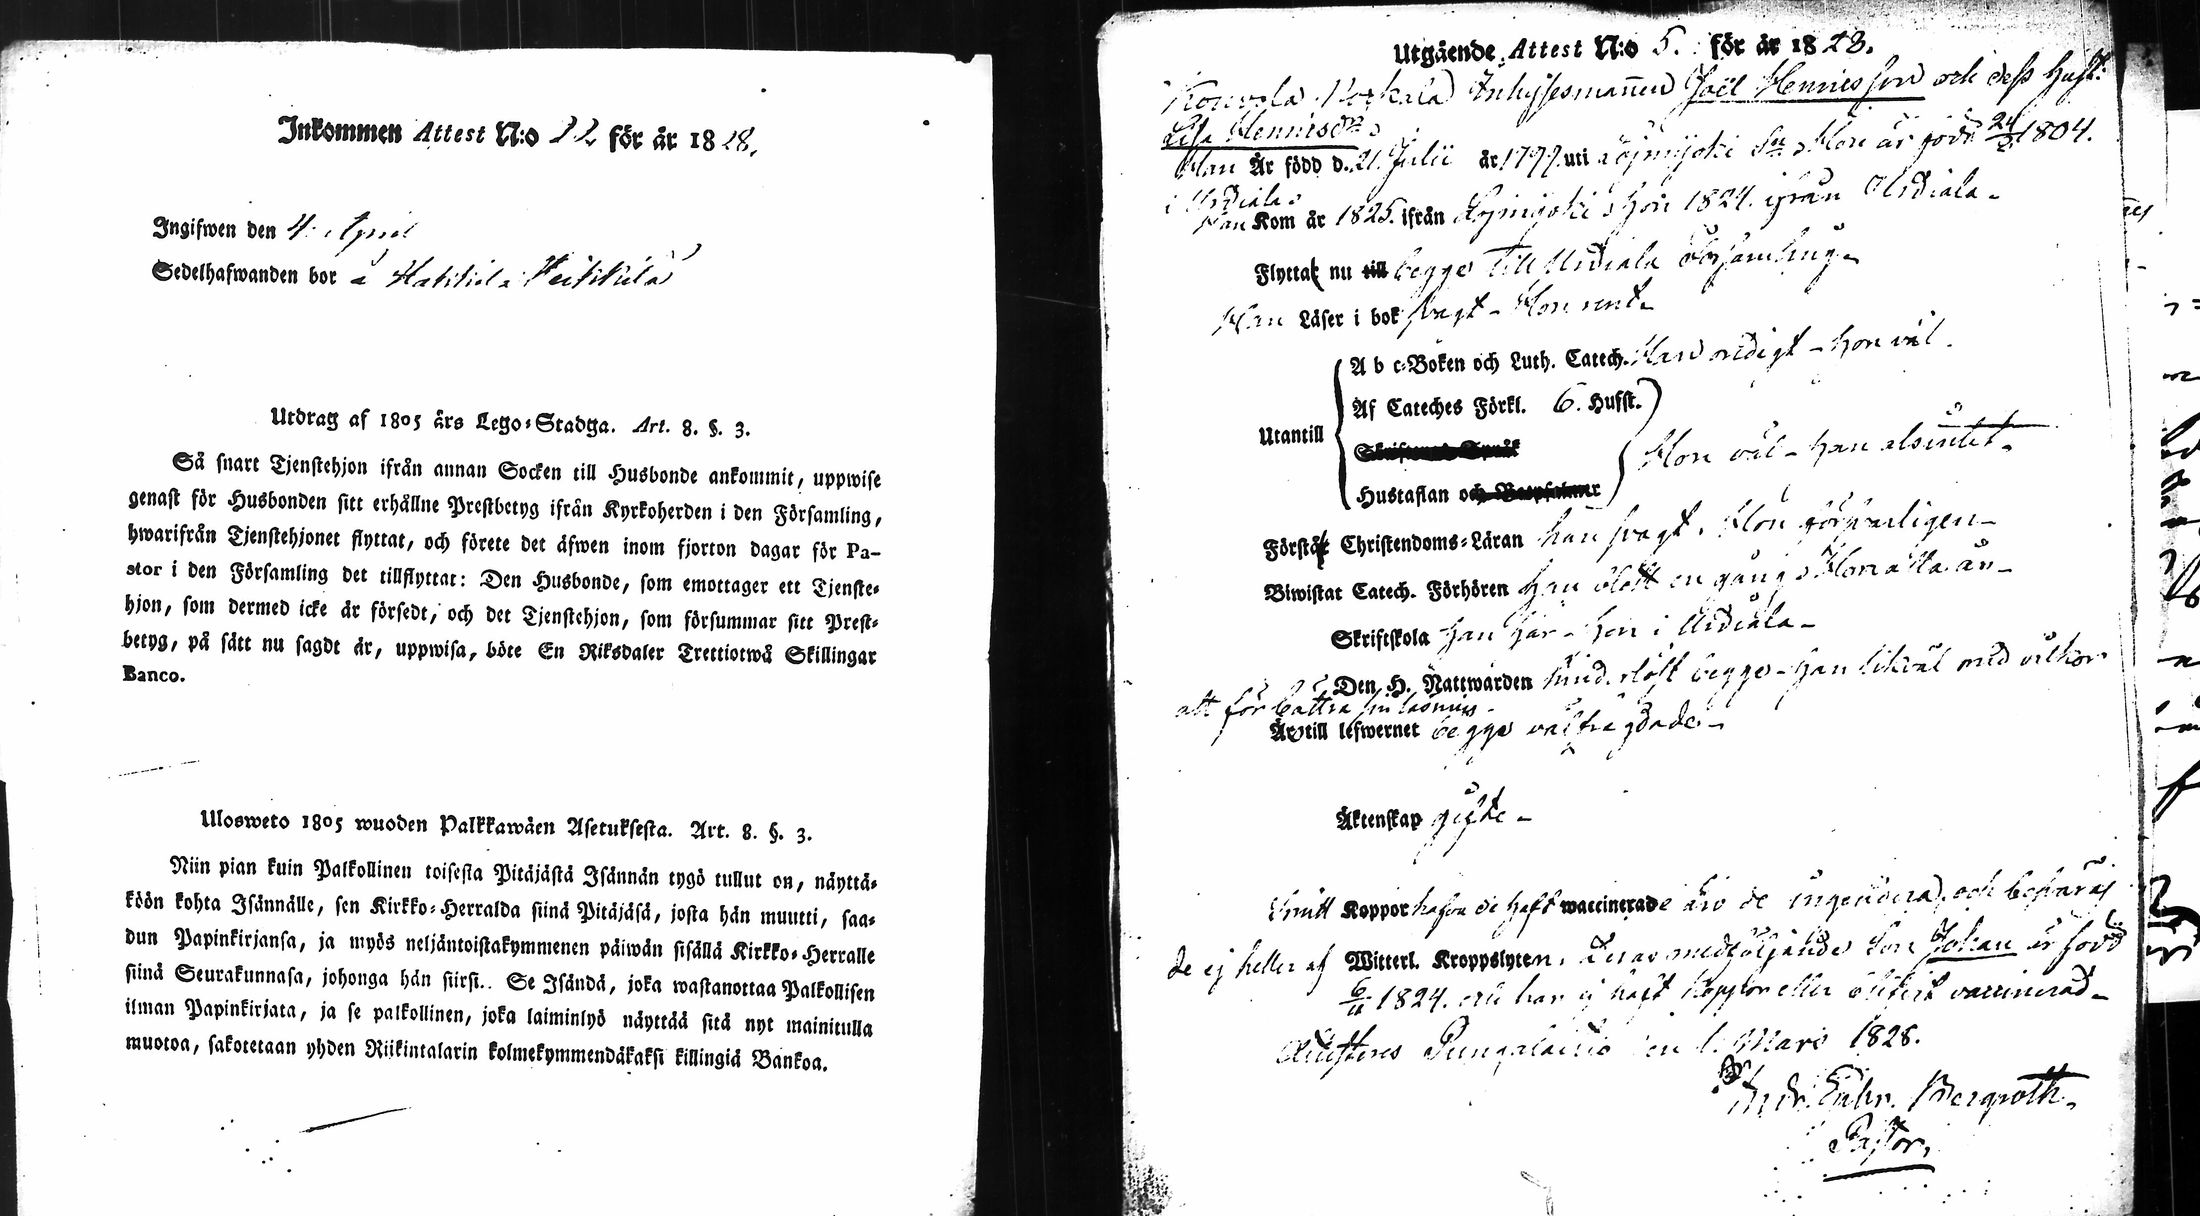 Inkommen Attest N:o 22 för år 1828.
Ingifwen den 4. April
Sedelhafwanden bor å Heikkilä
Utdrag af 1805 års Lego-Stadga. Art. 8. §. 3.
Så snart Tjenstehjon ifrån annan Socken till Husbonde ankommit, uppwise
genast för Husbonden sitt erhållne Prestbetyg ifrån Kyrkoherden i den Församling,
hwarifrån Tjenstehjonet flyttat, och förete det äfwen inom fjorton dagar för Pa-
stor i den Församling det tillflyttat: Den Husbonde, som emottager ett Tjenste-
hjon, som dermed icke är försedt, och det Tjenstehjon, som försummar sitt Prest-
betyg, på sätt nu sagdt är, uppwisa, böte En Riksdaler Trettiotwå Skillingar
Banco.
Ulosweto 1805 wuoden Palkkawäen Asetuksesta. Art. 8. §. 3.
Niin pian kuin Palkollinen toisesta Pitäjästä Isännän tygö tullut on, näyttä-
köön kohta Isännälle, sen Kirkko-Herralda siinä Pitäjäsä, josta hän muutti, saa-
dun Papinkirjansa, ja myös neljäntoistakymmenen päiwän sisällä Kirkko-Herralle
siinä Seurakunnasa, johonga hän siirsi.. Se Isändä, joka wastanottaa Palkollisen
ilman Papinkirjata, ja se palkollinen, joka laiminlyö näyttää sitä nyt mainitulla
muotoa, sakotetaan yhden Riikintalarin kolmekymmendäkaksi killingiä Bankoa.
Utgående Attest N:o 5. för år 1828.
Inhysesmannen Joël Hennisson och dess Hust:
Lisa Hennisdr
Han Är född d. 21. Julii år 1799. uti Hon är född 24/2 1804.
i Urdiala.
Han Kom år 1825. ifrån Hon 1824. ifrån Urdiala.
Flytta nu till begge till Urdiala Församling.
Han Läser i bok svagt - Hon rent.
A b c-Boken och Luth. Catech. Han redigt - hon väl.
Af Cateches Förkl. 6. Hufst.
Utantill
Skriftenes Språk
Hustaflan och Botpsalmer
Hon väl - han alsintet.
Förstå Christendoms-Läran han svagt. Hon försvarligen
Biwistat Catech. Förhören han blott en gång Hon alla år
Skriftskola han här - hon i Urdiala -
Den H. Nattwarden begge - han likväl med vilkor
att förbättra sin läsning
Äro till lefwernet begge välfrägdade -
Äktenskap gifte -
Koppor hafva de haft waccinerade äro de ingendera, och besväras
de ej heller af Witterl. Kroppslyten. Deras medföljande Son Johan är född
6/11 1824. och har ej haft koppor eller blifvit vaccinerad -
Pungalaitio den 1. Mars 1828.
Bergroth.
Pastor.